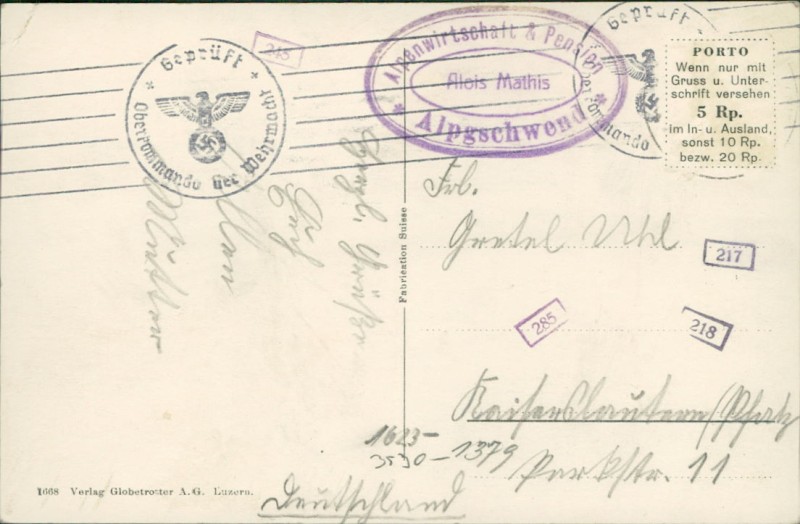 Geprüft
Oberkommando der Wehrmacht
245
Alpenwirtschaft & Pension
Alois Mathis
Alpgschwend
Geprüft
Oberkommando
PORTO
Wenn nur mit
Gruss u. Unter-
schrift versehen
5 Rp.
im In- u. Ausland,
sonst 10 Rp.
bezw. 20 Rp.
Herzl. Grüße
Mutter
Fabrication Suisse
Frl.
Gretel Uhl
217
285
218
Kaiserslautern/Pfalz
Parkstr. 11
Deutschland
1623-
3530-1379
1668 Verlag Globetrotter A.G. Luzern.